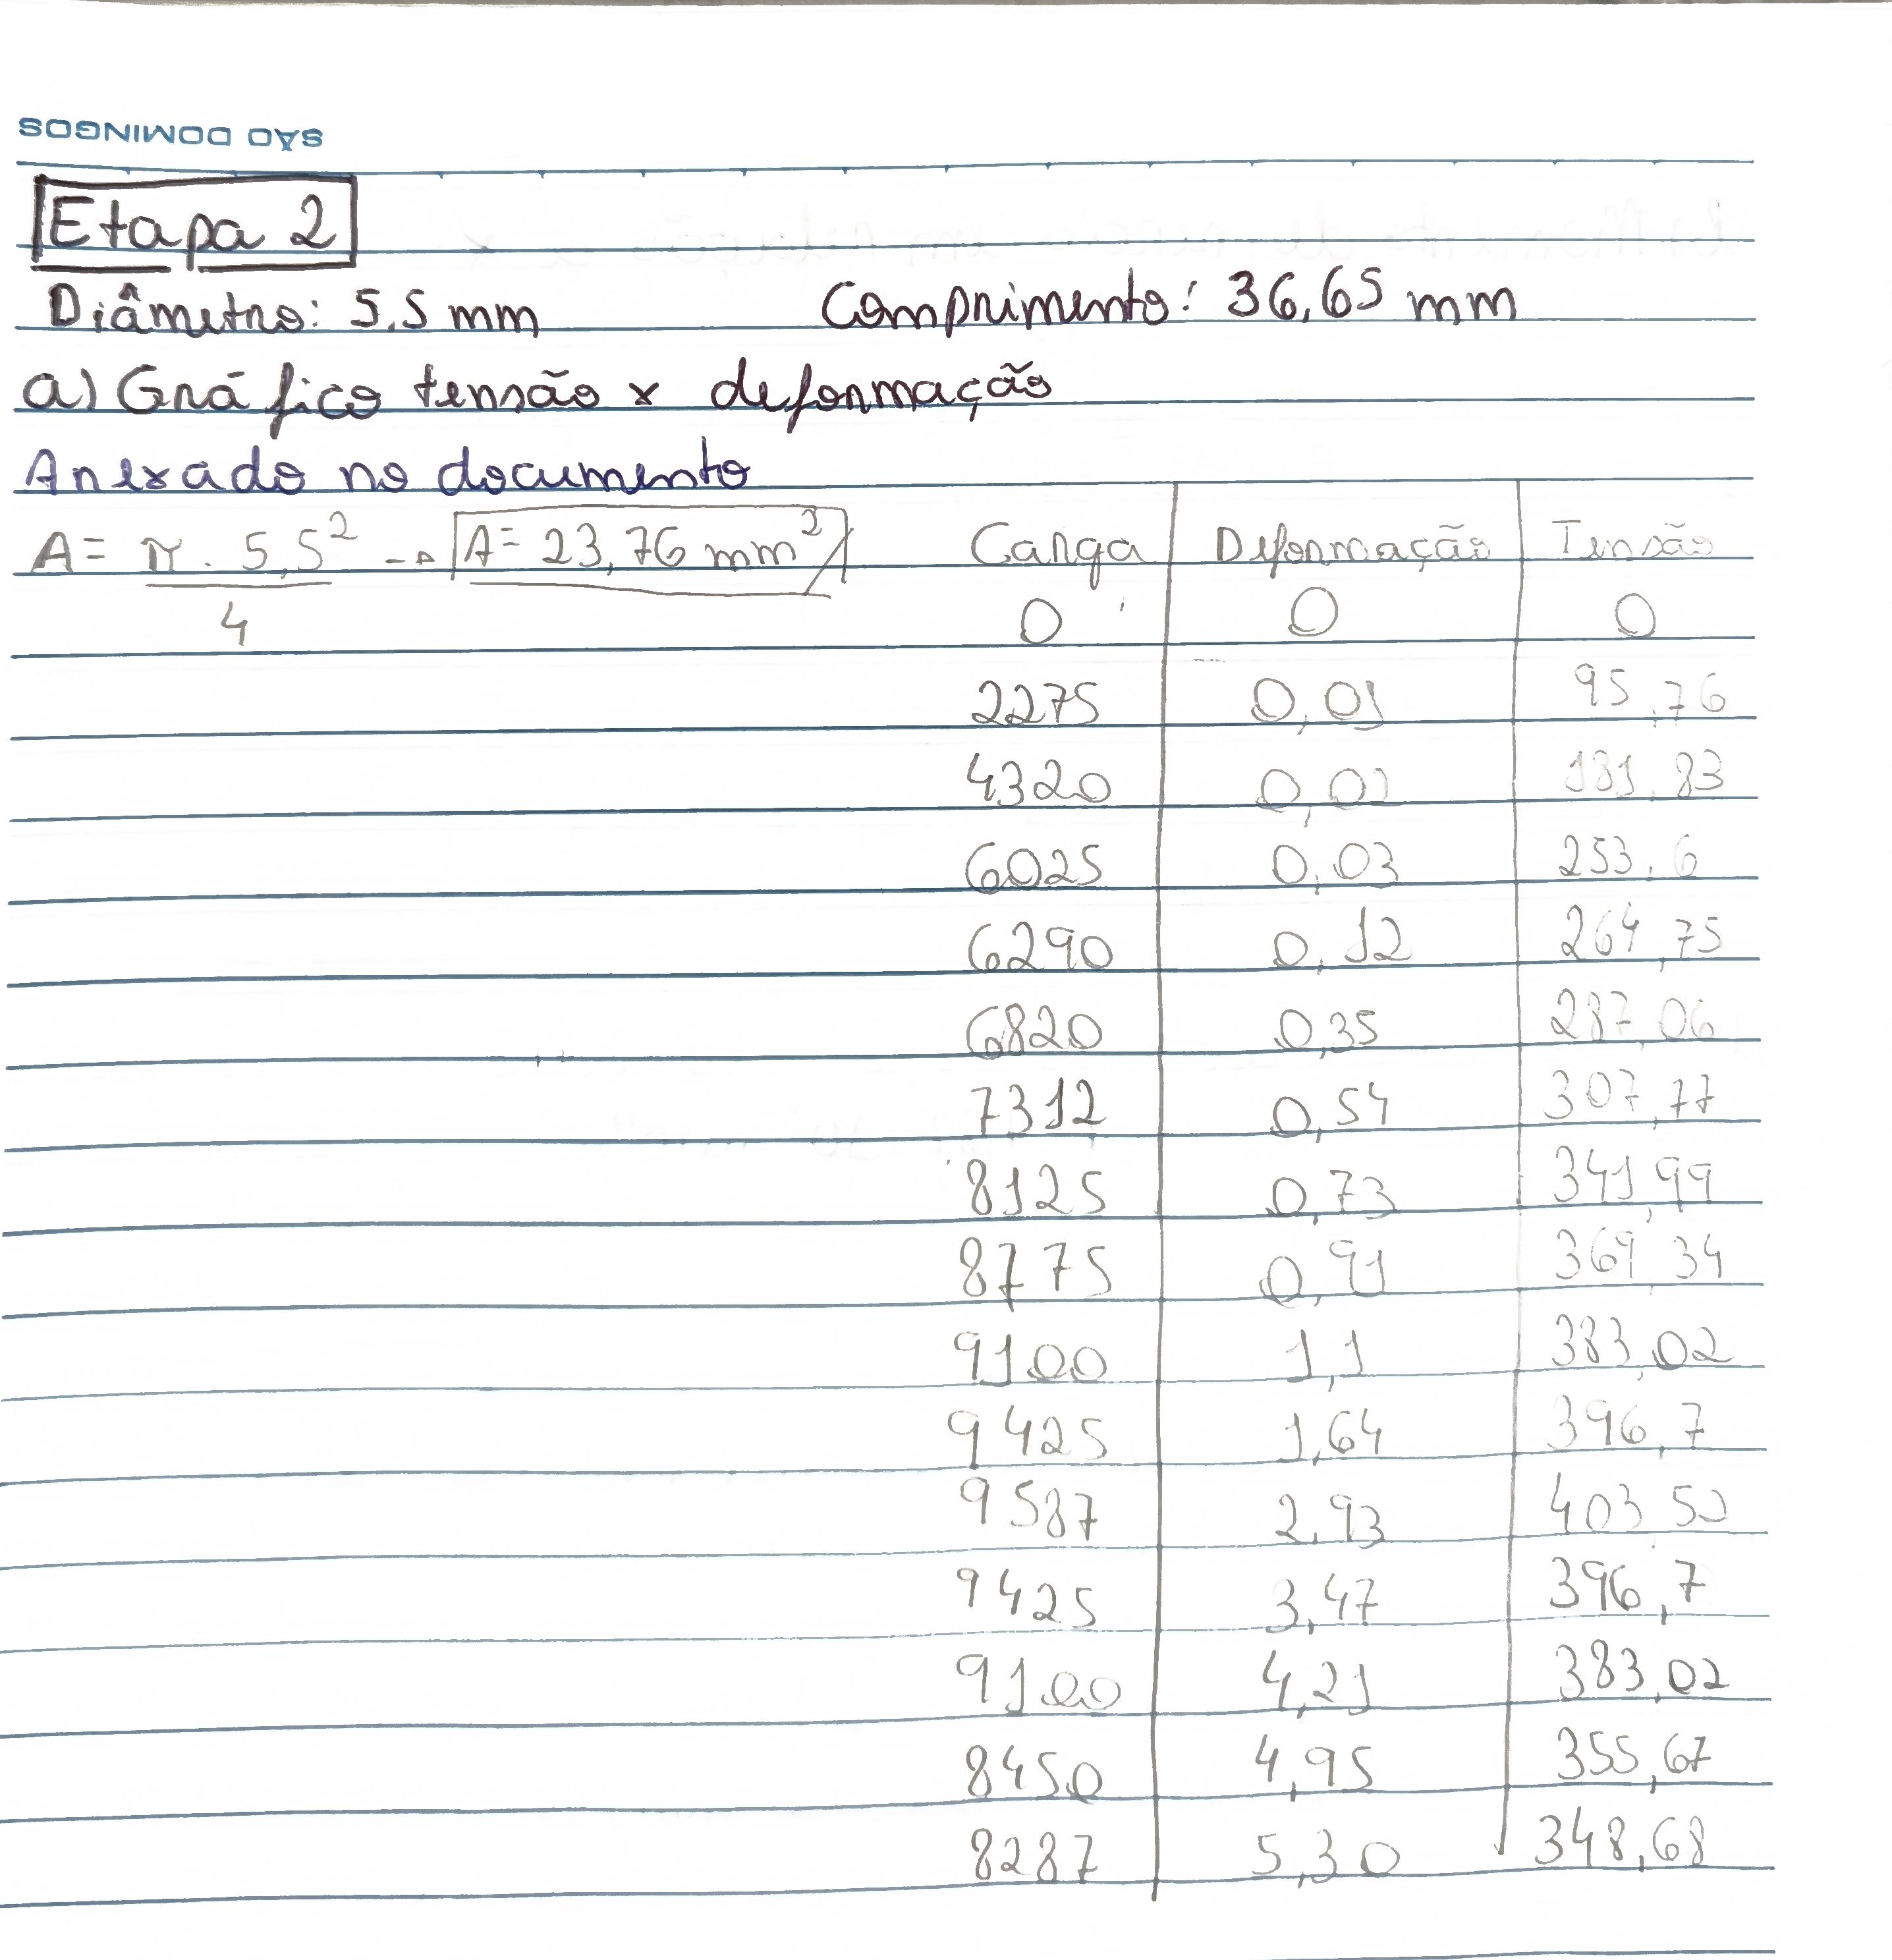 SÃO DOMINGOS
Etapa 2
Diâmetro: 5,5 mm Comprimento: 36,65 mm
a) Gráfico tensão x deformação
Anexado no documento
A = π . 5,5² / 4 → A = 23,76 mm²
Carga Deformação Tensão
0 0 0
2275 0,01 95,76
4320 0,02 181,83
6025 0,03 253,6
6290 0,12 264,75
6820 0,35 287,06
7312 0,54 307,77
8125 0,73 341,99
8775 0,91 369,34
9100 1,1 383,02
9425 1,64 396,7
9587 2,93 403,52
9425 3,47 396,7
9100 4,21 383,02
8450 4,95 355,67
8287 5,30 348,68